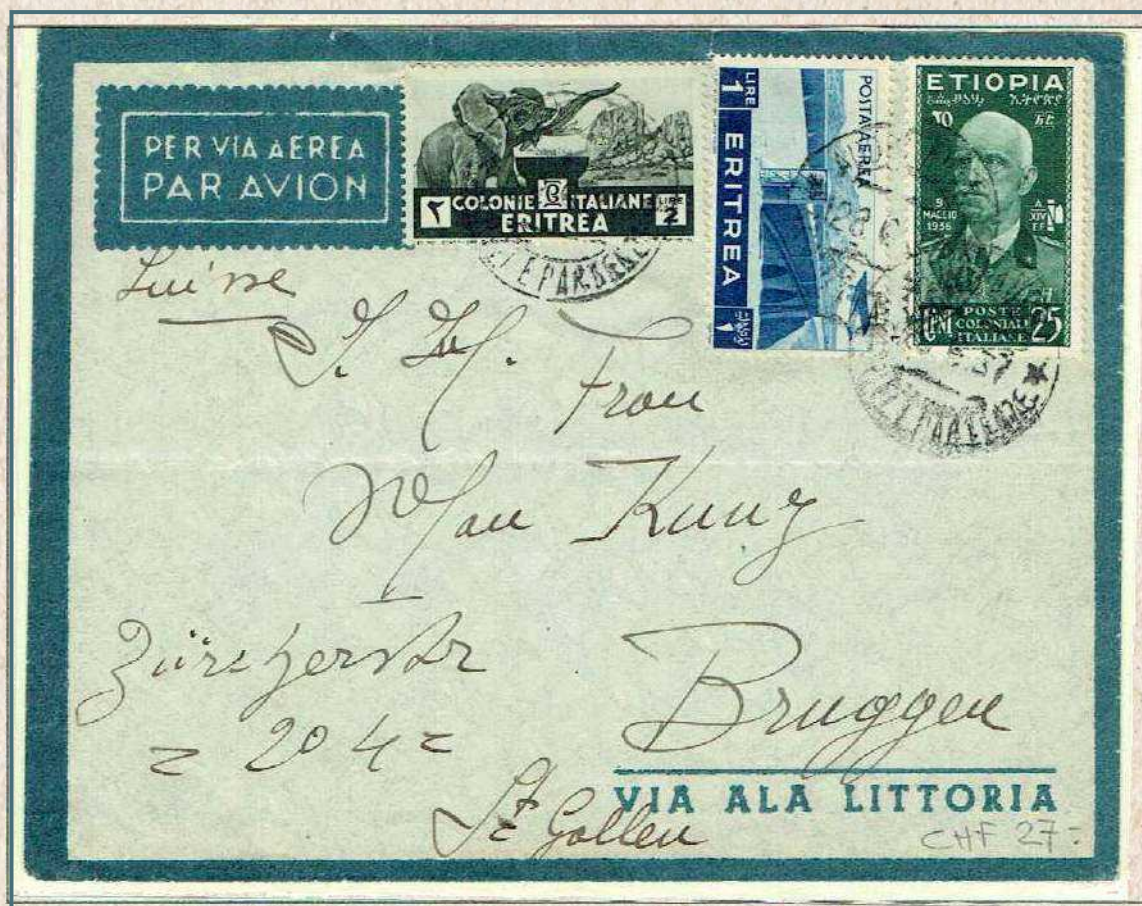 PER VIA AEREA
PAR AVION
٢ COLONIE ITALIANE LIRE 2
ERITREA
LIRE 1 ERITREA ١
POSTA AEREA
ETIOPIA
ኢትዮጵያ
9 MAGGIO 1936
A. XIV E.F.
CENT POSTE COLONIALI ITALIANE 25
Suisse
Frau
Kunz
Zürcherstr
= 204 =
Bruggen
St Gallen
VIA ALA LITTORIA
CHF 27.-